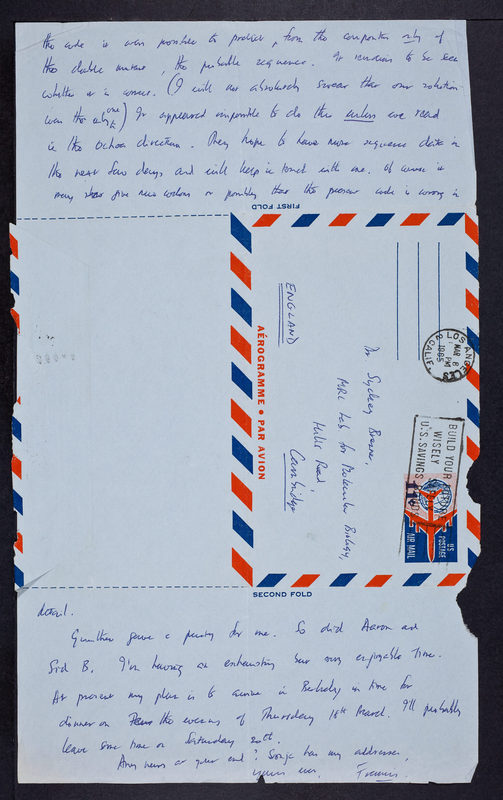 the code it was possible to predict, from the composition only of
the double mutant, the probable sequence. It remains to be seen
whether it is correct. (I will not absolutely swear that our solution
was the only one) It appeared impossible to do this unless one read
in the Ochoa direction. They hope to have more sequence data in
the next few days and will keep in touch with me. Of course it
may give new codons or possibly that the present code is wrong in
FIRST FOLD
AÉROGRAMME • PAR AVION
Dr Sydney Brenner,
MRC Lab for Molecular Biology,
Hills Road,
Cambridge
ENGLAND
LOS ANGELES
CALIF.
MAR 8
PM
1965
BUILD YOUR
WISELY
U.S. SAVINGS
11¢
US POSTAGE
AIR MAIL
SECOND FOLD
detail.
Gunther gave a party for me. So did Aaron and
Sid B. I'm having an exhausting but very enjoyable time.
At present my plan is to arrive in Berkeley in time for
dinner on the evening of Thursday 18th March. I'll probably
leave some time on Saturday 20th.
Any news at your end? Sonja has my addresses.
yours ever, Francis.